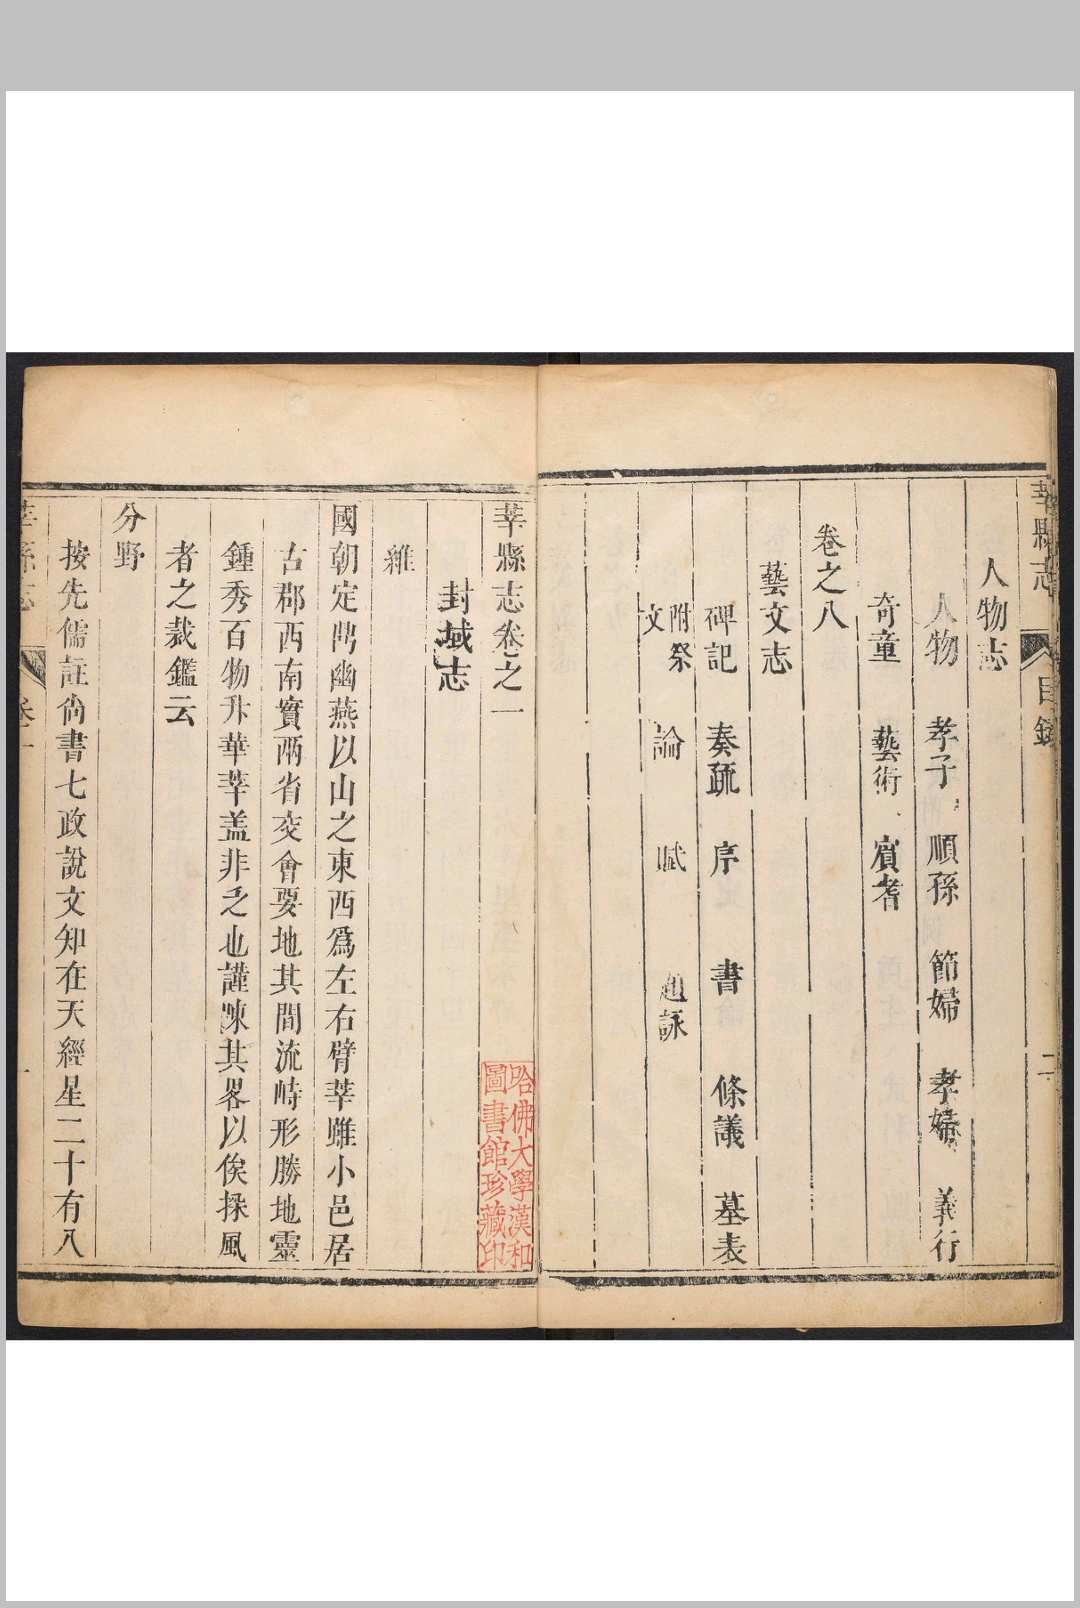 莘縣志 目錄 二
人物志
人物 孝子 順孫 節婦 孝婦 義行
奇童 藝術 賓耆
卷之八
藝文志
碑記 奏疏 序 書 條議 墓表
附祭文 論 賦 題詠
莘縣志卷之一
封域志
維
國朝定鼎幽燕以山之東西爲左右臂莘雖小邑居
古郡西南實兩省交會要地其間流峙形勝地靈
鍾秀百物升華莘盖非乏也謹陳其畧以俟採風
者之裁鑑云
分野
按先儒註尚書七政說文知在天經星二十有八
莘縣志 卷一 一
哈佛大學漢和
圖書館珍藏印